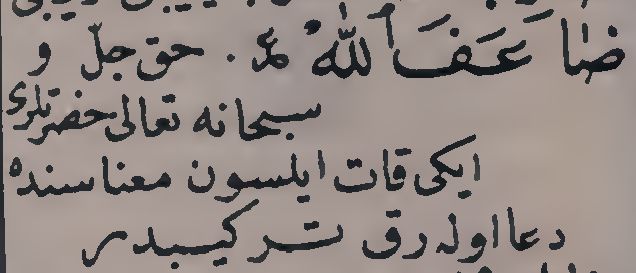 ضَاعَفَ اللّٰهُ . حق جلّ و
سبحانه تعالى حضرتلرى
ايكى قات ايلسون معناسنده
دعا اوله رق تركيبدر